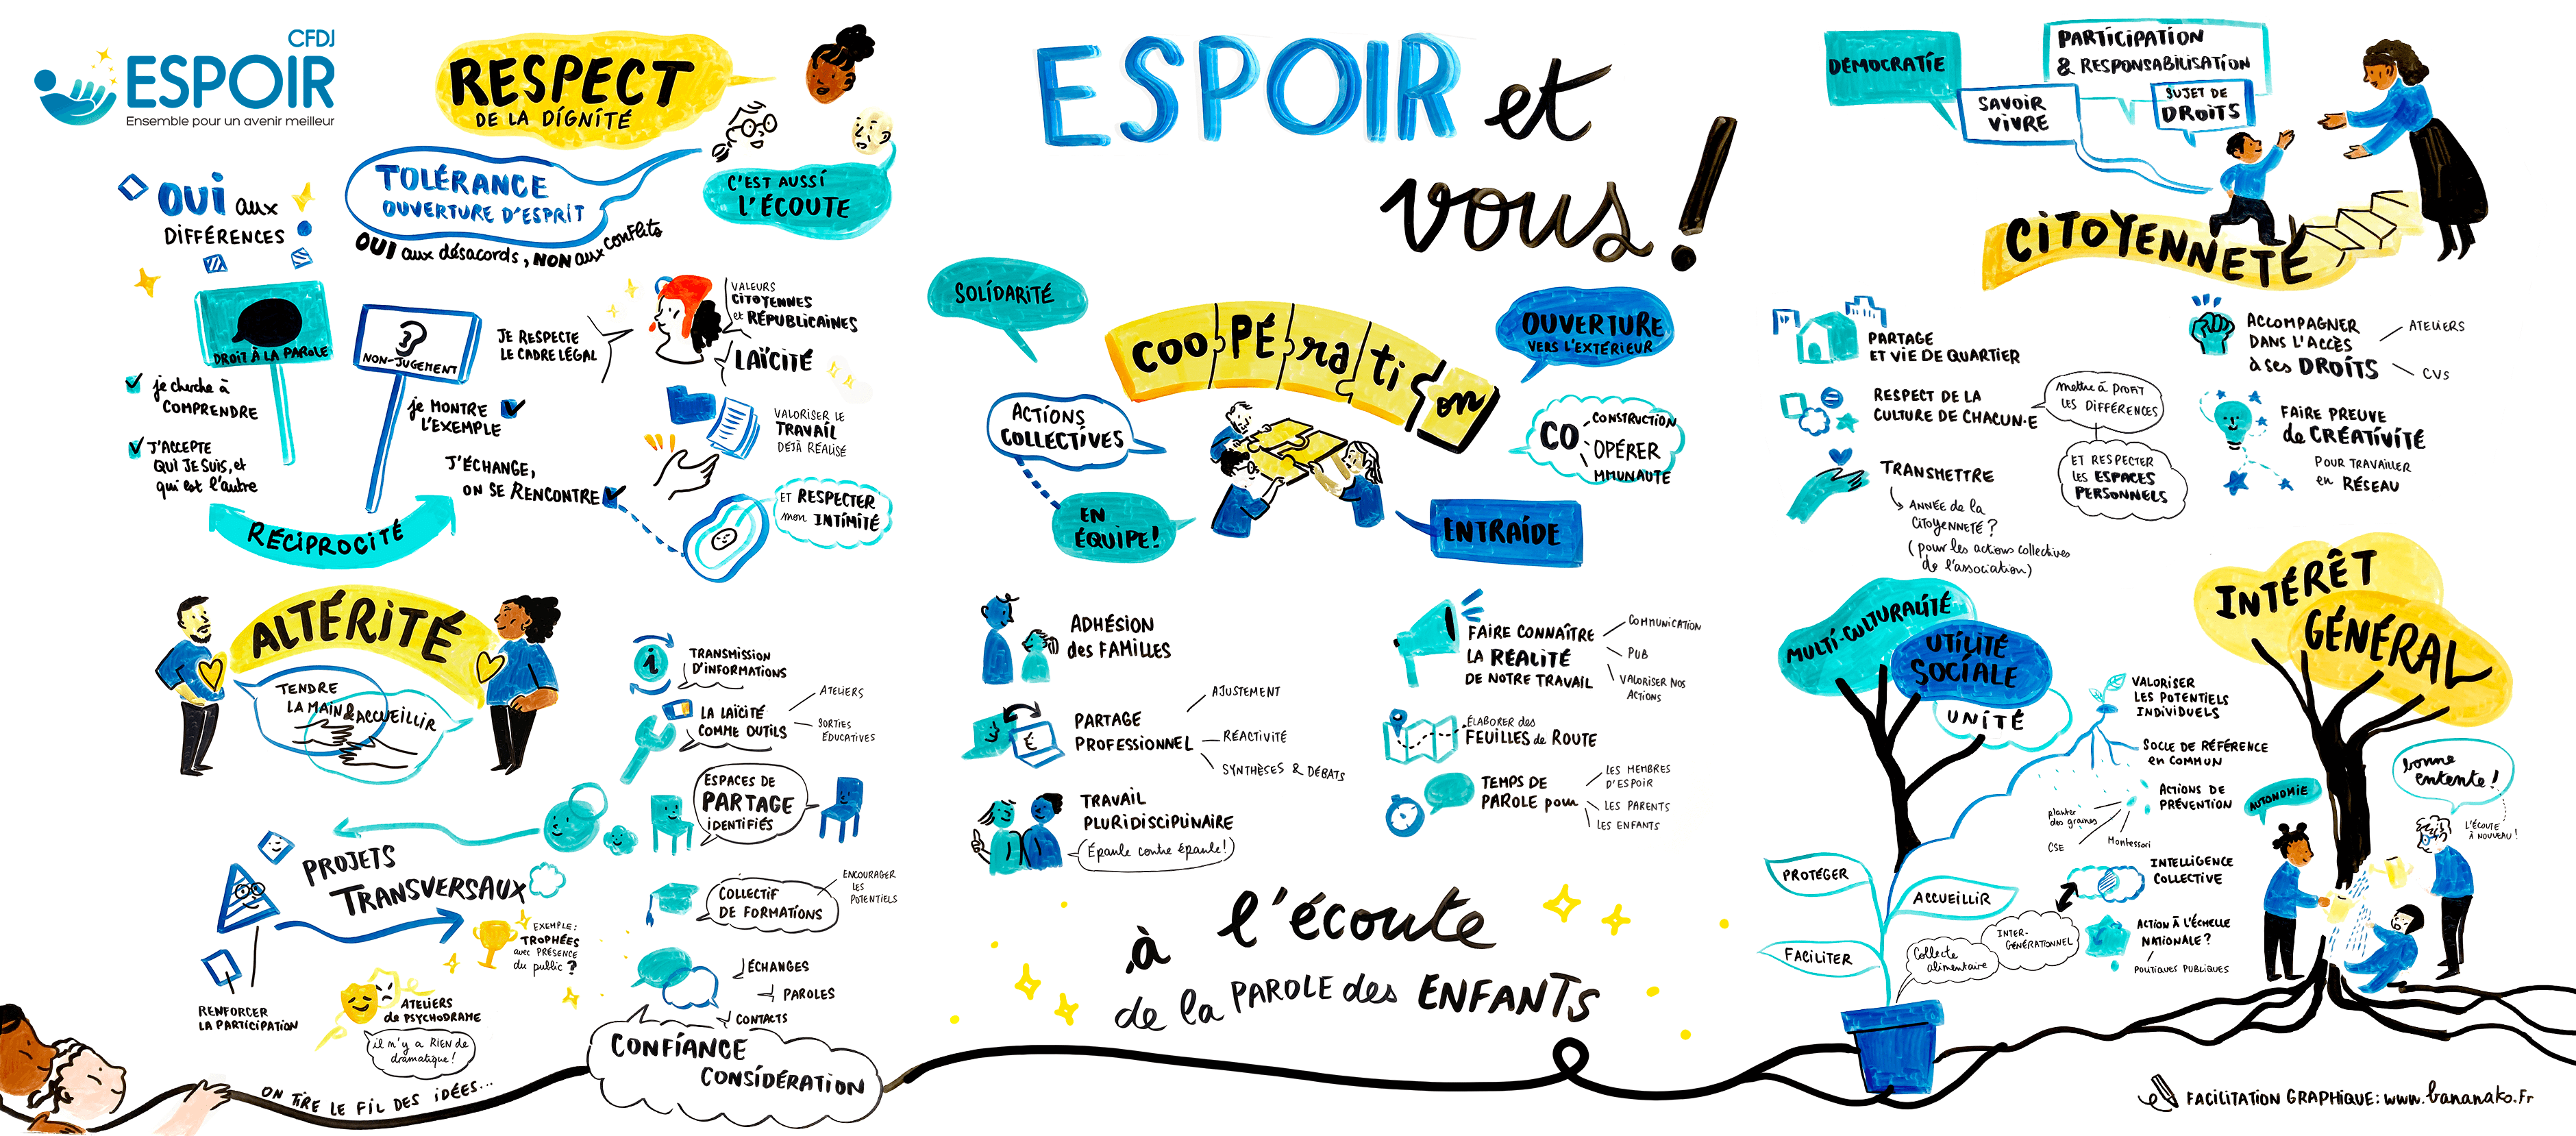 CFDJ
ESPOIR
Ensemble pour un avenir meilleur
RESPECT
DE LA DIGNITÉ
TOLÉRANCE
OUVERTURE D'ESPRIT
C'EST AUSSI
L'ÉCOUTE
OUI aux désacords, NON aux conflits
OUI aux
DIFFÉRENCES
DROIT À LA PAROLE
NON-JUGEMENT
je cherche à
COMPRENDRE
J'ACCEPTE
QUI JE SUIS, et
qui est l'autre
je MONTRE
L'EXEMPLE
J'ÉCHANGE,
ON SE RENCONTRE
RÉCIPROCITÉ
JE RESPECTE
LE CADRE LÉGAL
VALEURS
CITOYENNES
et RÉPUBLICAINES
LAÏCITÉ
VALORISER LE
TRAVAIL
DÉJÀ RÉALISÉ
ET RESPECTER
mon INTIMITÉ
ALTÉRITÉ
TENDRE
LA MAIN & ACCUEILLIR
TRANSMISSION
D'INFORMATIONS
LA LAÏCITÉ
COMME OUTILS
ATELIERS
SORTIES
ÉDUCATIVES
ESPACES DE
PARTAGE
IDENTIFIÉS
COLLECTIF
DE FORMATIONS
ENCOURAGER
LES
POTENTIELS
ÉCHANGES
PAROLES
CONTACTS
PROJETS
TRANSVERSAUX
EXEMPLE:
TROPHÉES
avec PRÉSENCE
du public ?
RENFORCER
LA PARTICIPATION
ATELIERS
de PSYCHODRAME
il n'y a RIEN de
dramatique !
ON TIRE LE FIL DES IDÉES...
CONFIANCE
CONSIDÉRATION
ESPOIR et
vous !
SOLIDARITÉ
COOPÉration
OUVERTURE
VERS L'EXTÉRIEUR
ACTIONS
COLLECTIVES
EN
ÉQUIPE!
CO
CONSTRUCTION
OPÉRER
MMUNAUTÉ
ENTRAIDE
ADHÉSION
des FAMILLES
PARTAGE
PROFESSIONNEL
AJUSTEMENT
RÉACTIVITÉ
SYNTHÈSES & DÉBATS
TRAVAIL
PLURIDISCIPLINAIRE
Épaule contre épaule!
FAIRE CONNAÎTRE
LA RÉALITÉ
DE NOTRE TRAVAIL
COMMUNICATION
PUB
VALORISER NOS
ACTIONS
ÉLABORER des
FEUILLES de ROUTE
TEMPS DE
PAROLE pour
LES MEMBRES
D'ESPOIR
LES PARENTS
LES ENFANTS
à l'écoute
de la PAROLE des ENFANTS
DÉMOCRATIE
PARTICIPATION
& RESPONSABILISATION
SAVOIR
VIVRE
SUJET DE
DROITS
CITOYENNETÉ
PARTAGE
ET VIE DE QUARTIER
RESPECT DE LA
CULTURE DE CHACUN·E
mettre à PROFIT
LES DIFFÉRENCES
ET RESPECTER
LES ESPACES
PERSONNELS
TRANSMETTRE
ANNÉE de la
CITOYENNETÉ ?
(pour les actions collectives
de l'association)
ACCOMPAGNER
DANS L'ACCÈS
à ses DROITS
ATELIERS
CVS
FAIRE PREUVE
de CRÉATIVITÉ
POUR TRAVAILLER
en RÉSEAU
MULTI-CULTURALITÉ
UTILITÉ
SOCIALE
UNITÉ
INTÉRÊT
GÉNÉRAL
VALORISER
LES POTENTIELS
INDIVIDUELS
SOCLE DE RÉFÉRENCE
en COMMUN
ACTIONS DE
PRÉVENTION
planter
des graines
CSE
Montessori
INTELLIGENCE
COLLECTIVE
ACTION À L'ÉCHELLE
NATIONALE ?
POLITIQUES PUBLIQUES
INTER-
GÉNÉRATIONNEL
Collecte
alimentaire
PROTÉGER
ACCUEILLIR
FACILITER
AUTONOMIE
bonne
entente !
L'ÉCOUTE
À NOUVEAU !
FACILITATION GRAPHIQUE: www.bananako.fr